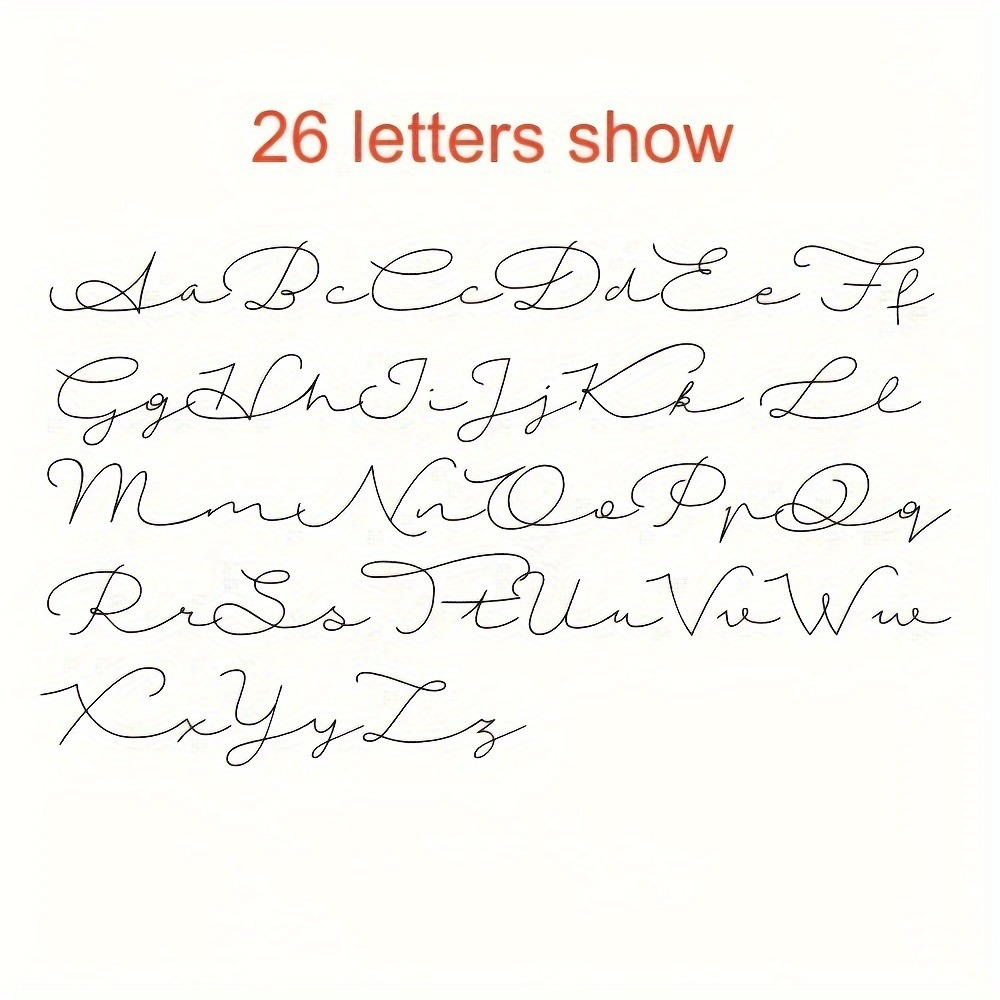 26 letters show
AaBcCcDdEeFf
GgHhIiJjKk Ll
MmNnOoPpQq
RrSsTtUuVvWw
XxYyZz